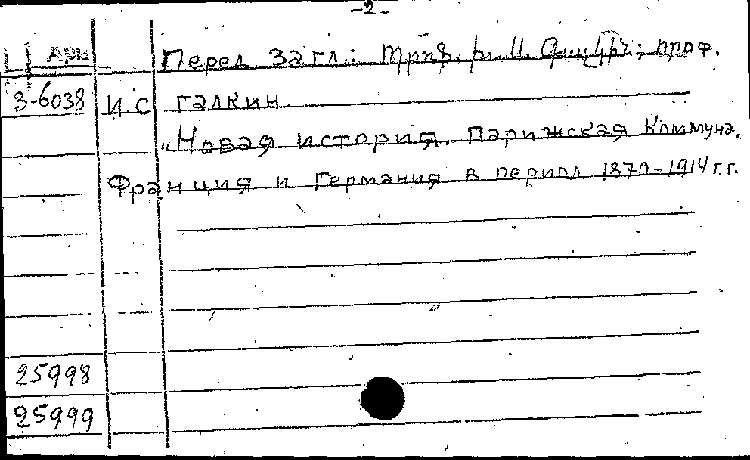 -2-
Перед загл: проф.
3-6038 И.С Галкин
„Новая история. Парижская Коммуна.
Франция и Германия в период 1870-1914 г.г.
25998
25999